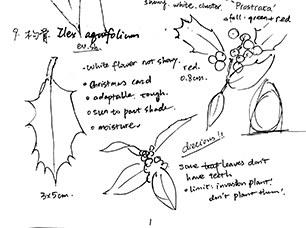 showy, white, cluster.
"Prostrata"
fall: green → red
9. 枸骨 Ilex aquifolium
ev. sh.
• white flower not showy.
• Christmas card
• adaptable. tough.
• sun to part shade.
• moisture.
red.
0.8cm.
3x5cm.
dioecious!!
some leaves don't
have teeth
• limit: invasion plant!
don't plant them!
1